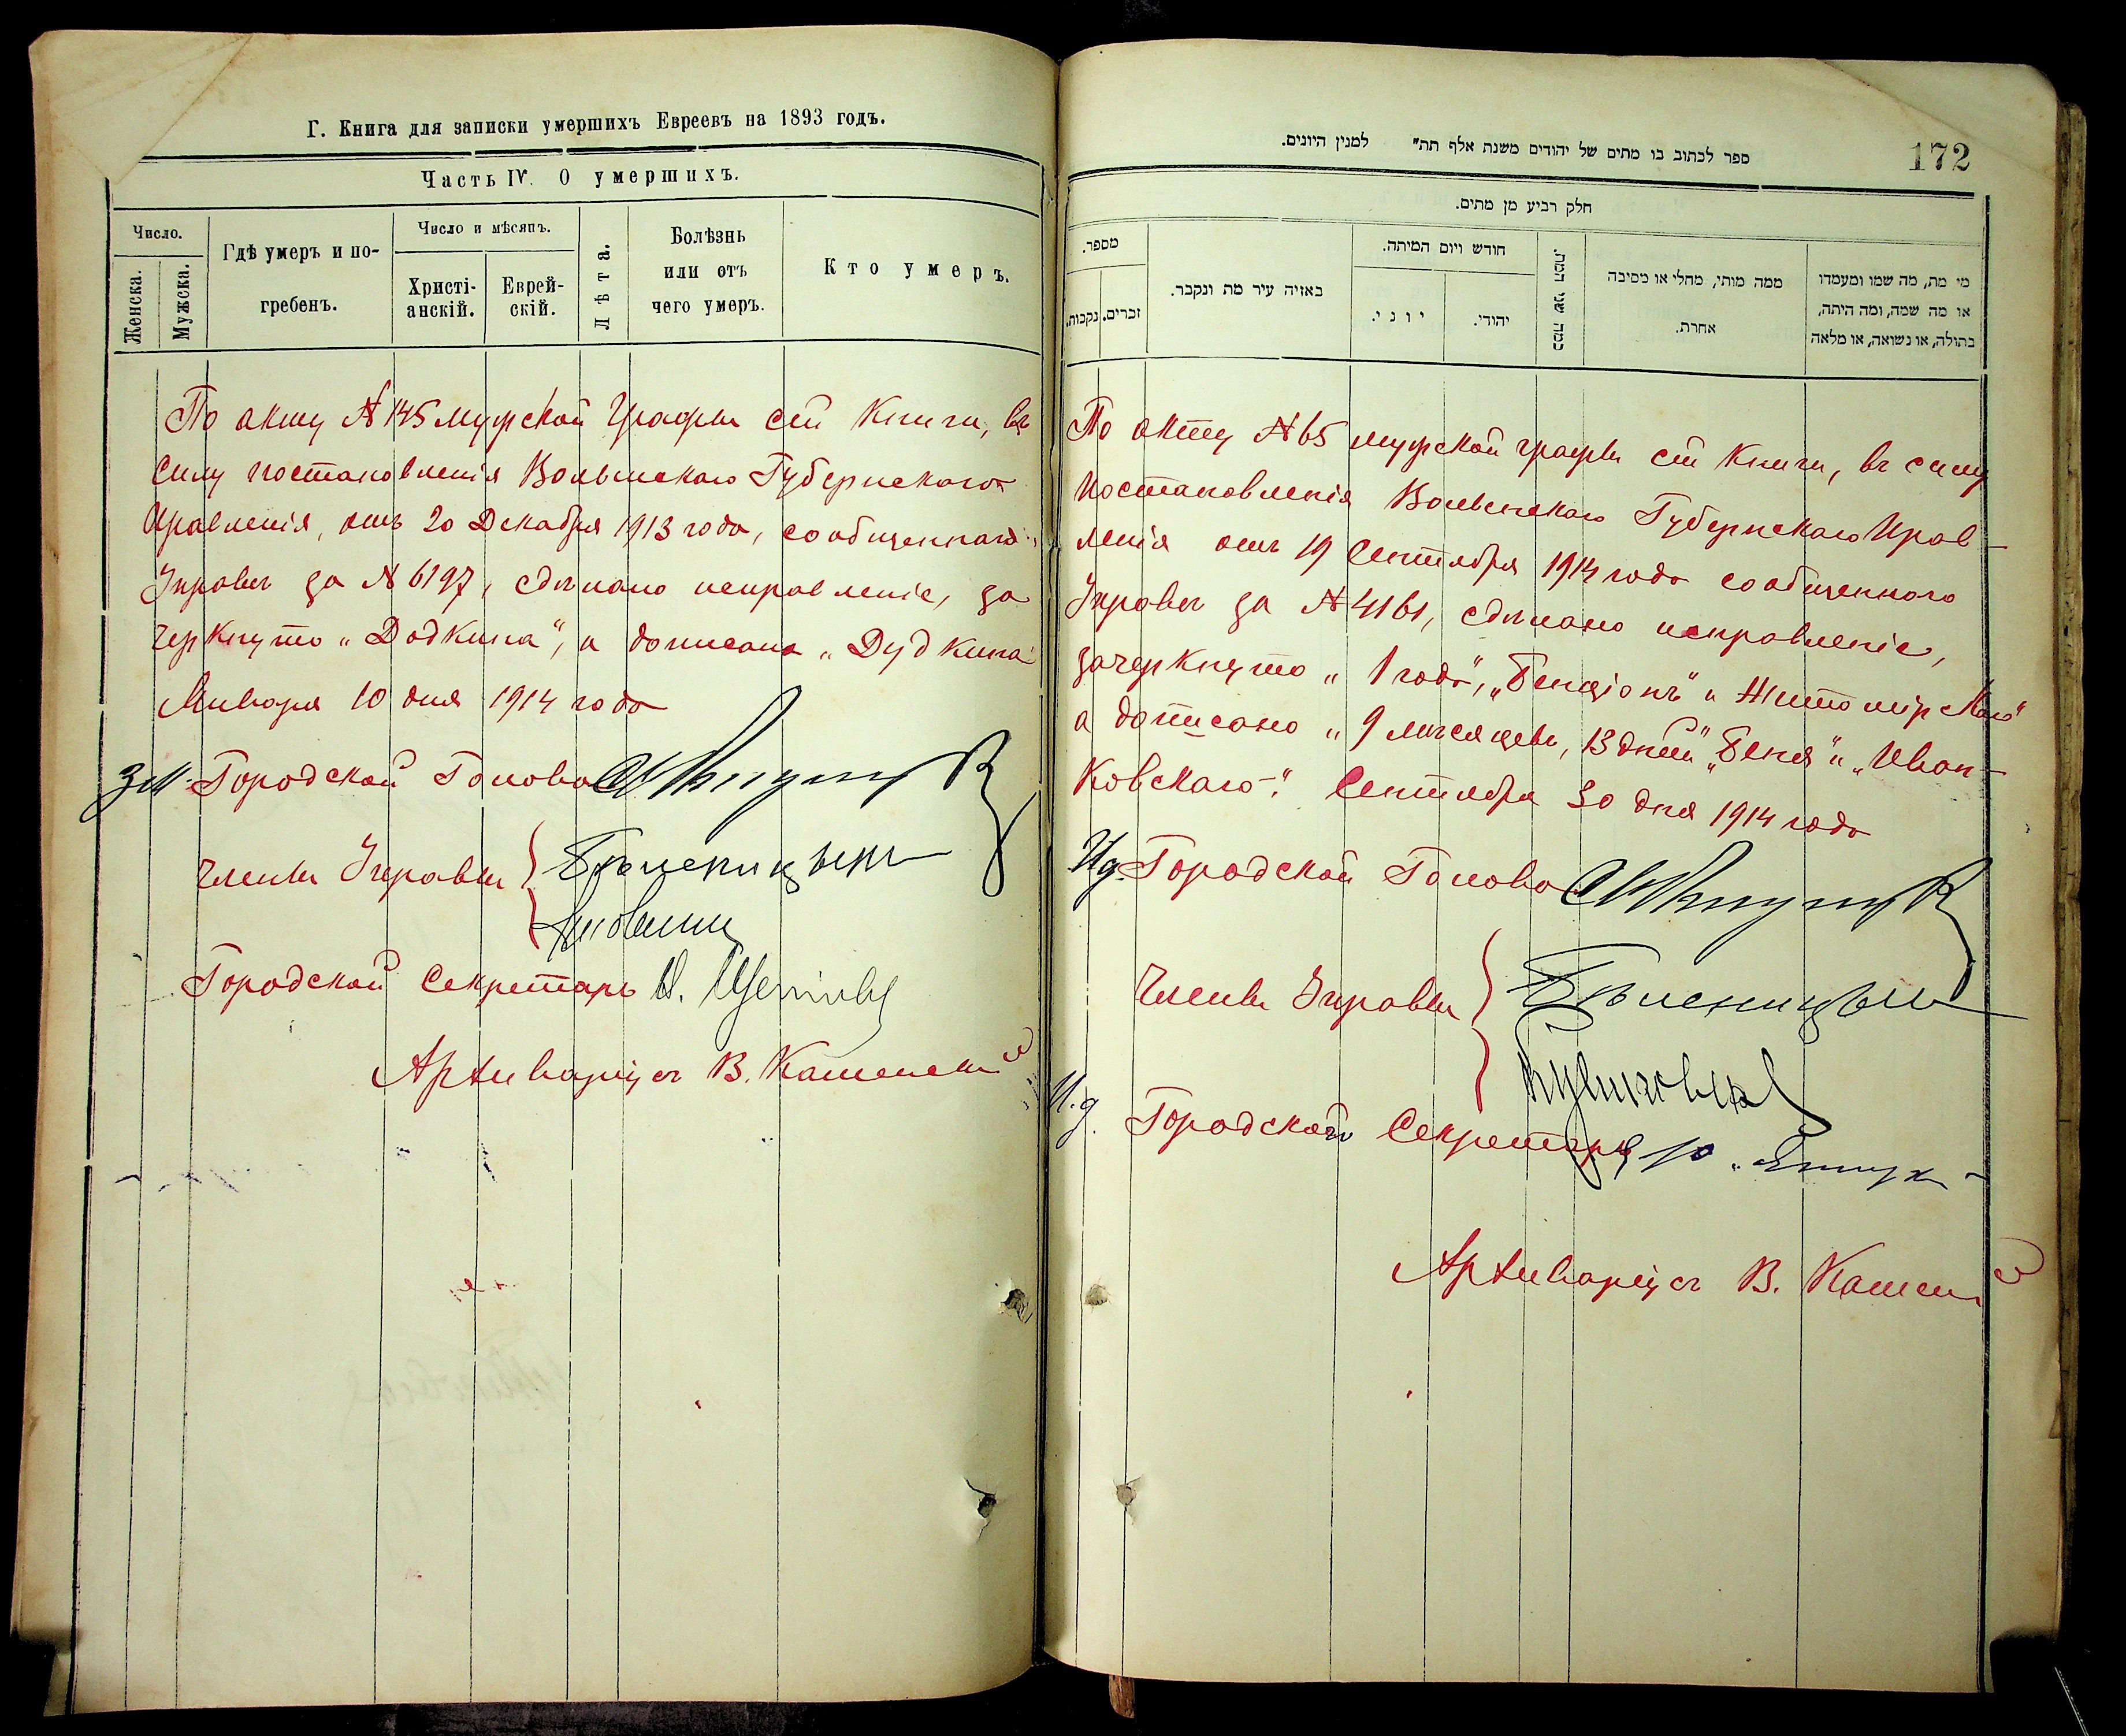 Г. Книга для записки умершихъ Евреевъ на 1893 годъ.
Часть IV. О умершихъ.
Число.
Женска.
Мужска.
Гдѣ умеръ и по-
гребенъ.
Число и мѣсяцъ.
Христі-
анскій.
Еврей-
скій.
Лѣта.
Болѣзнь
или отъ
чего умеръ.
Кто умеръ.
По акту № 145 мужской графы сей книги, въ
силу постановленія Волынскаго Губернскаго
Правленія, отъ 20 Декабря 1913 года, сообщеннаго
Управѣ за № 6197, сдѣлано исправленіе, за
черкнуто „Додкина", а дописано „Дудкина"
Января 10 дня 1914 года
Городской Голова
Члены Управы
Городской Секретарь
Архиваріусъ В. Каменскій
172
ספר לכתוב בו מתים של יהודים משנת אלף תת״ למנין היונים.
חלק רביע מן מתים.
מספר.
זכרים.
נקבות.
באיזה עיר מת ונקבר.
חודש ויום המיתה.
יוני.
יהודי.
כמה שני המת.
ממה מותי, מחלי או מסיבה
אחרת.
מי מת, מה שמו ומעמדו
או מה שמה, ומה היתה,
בתולה, או נשואה, או מלאה
По акту № 65 мужской графы сей книги, въ силу
постановленія Волынскаго Губернскаго Прав-
ленія отъ 19 Сентября 1914 года сообщеннаго
Управѣ за № 4161, сдѣлано исправленіе,
зачеркнуто „1 года", „Бенціонъ" и Житомірскаго"
а дописано „9 мѣсяцевъ, 13 дней" „Беня" и „Иван-
ковскаго". Сентября 30 дня 1914 года
И д. Городской Голова
Члены Управы
И. д. Городского Секретаря
Архиваріусъ В. Каменскій